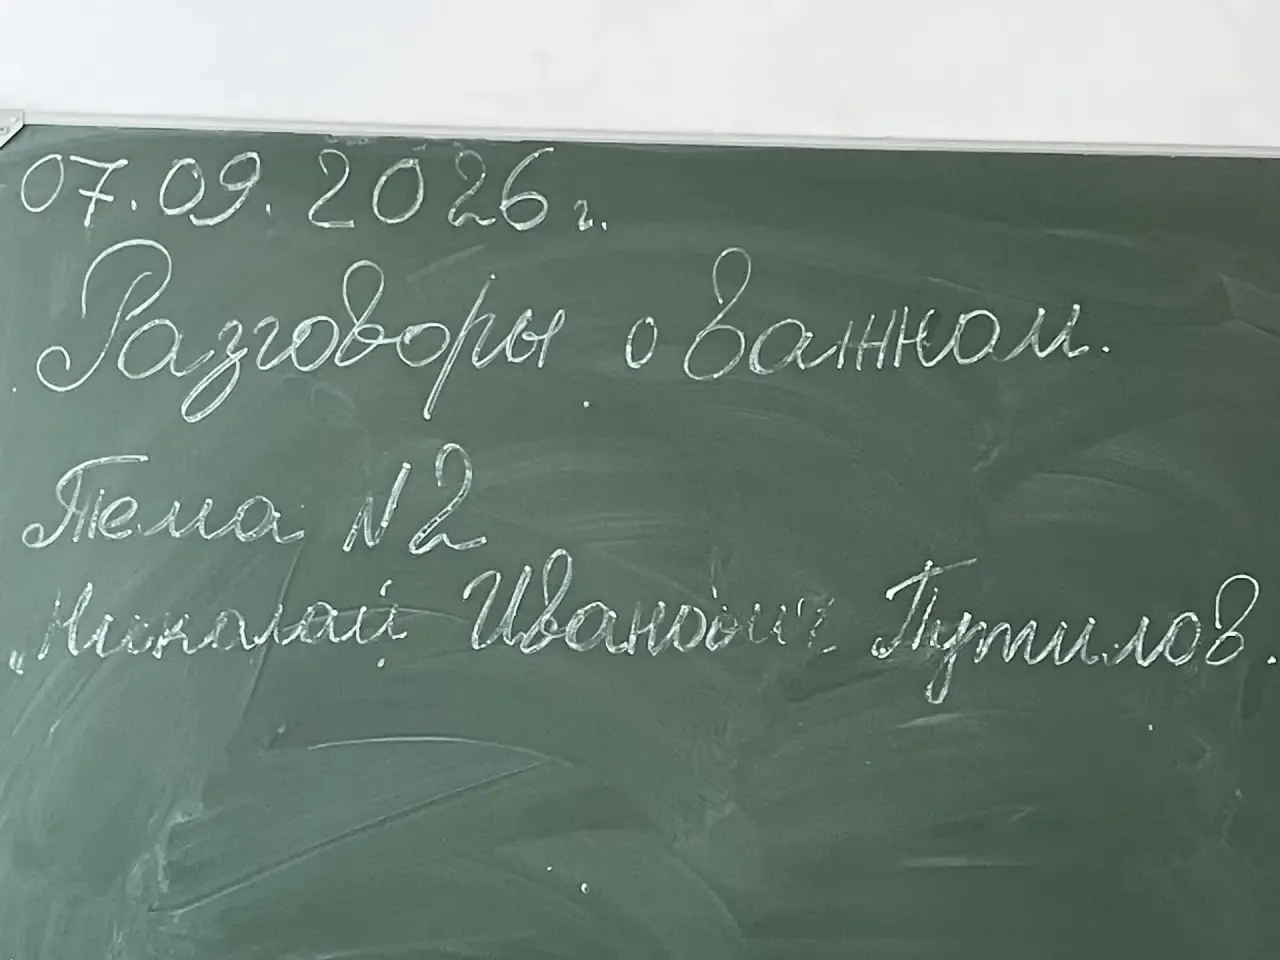 07.09.2026 г.
Разговоры о важном.
Тема N2
„Николай Иванович Путилов.